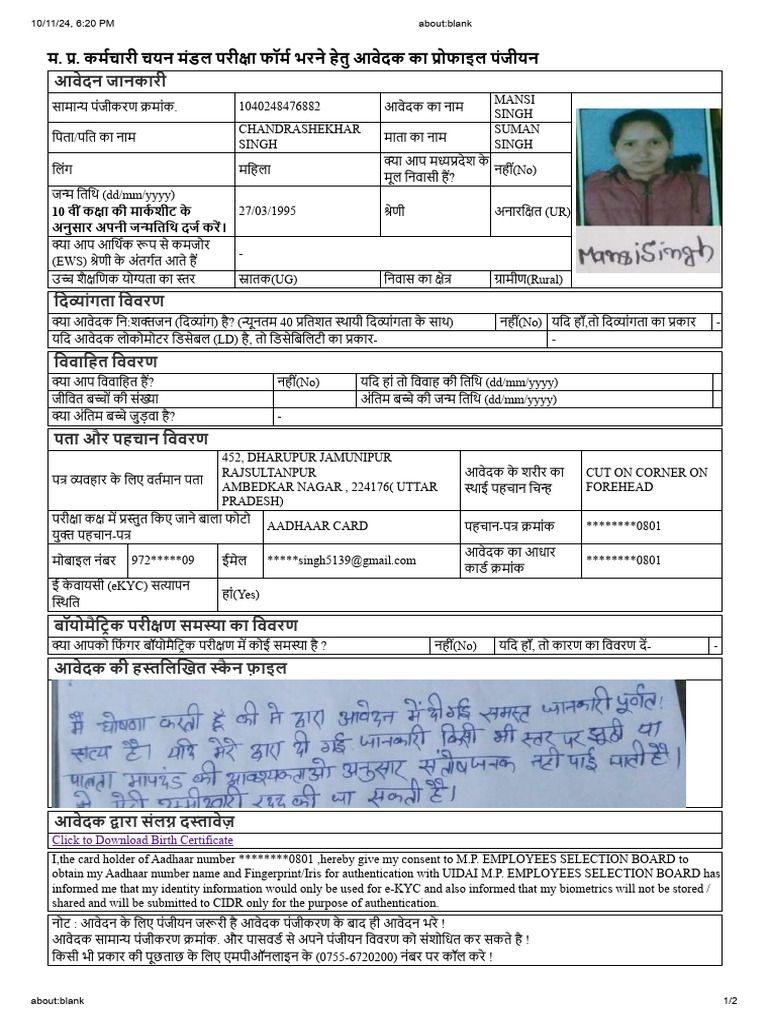 10/11/24, 6:20 PM about:blank
म. प्र. कर्मचारी चयन मंडल परीक्षा फॉर्म भरने हेतु आवेदक का प्रोफाइल पंजीयन
आवेदन जानकारी
सामान्य पंजीकरण क्रमांक. 1040248476882 आवेदक का नाम MANSI SINGH
पिता/पति का नाम CHANDRASHEKHAR SINGH माता का नाम SUMAN SINGH
लिंग महिला क्या आप मध्यप्रदेश के मूल निवासी हैं? नहीं(No)
जन्म तिथि (dd/mm/yyyy)
10 वीं कक्षा की मार्कशीट के
अनुसार अपनी जन्मतिथि दर्ज करें। 27/03/1995 श्रेणी अनारक्षित (UR)
Mansi Singh
क्या आप आर्थिक रूप से कमजोर
(EWS) श्रेणी के अंतर्गत आते हैं -
उच्च शैक्षणिक योग्यता का स्तर स्नातक(UG) निवास का क्षेत्र ग्रामीण(Rural)
दिव्यांगता विवरण
क्या आवेदक नि:शक्तजन (दिव्यांग) है? (न्यूनतम 40 प्रतिशत स्थायी दिव्यांगता के साथ) नहीं(No) यदि हाँ,तो दिव्यांगता का प्रकार -
यदि आवेदक लोकोमोटर डिसेबल (LD) है, तो डिसेबिलिटी का प्रकार- -
विवाहित विवरण
क्या आप विवाहित हैं? नहीं(No) यदि हां तो विवाह की तिथि (dd/mm/yyyy)
जीवित बच्चों की संख्या अंतिम बच्चे की जन्म तिथि (dd/mm/yyyy)
क्या अंतिम बच्चे जुड़वा है? -
पता और पहचान विवरण
पत्र व्यवहार के लिए वर्तमान पता 452, DHARUPUR JAMUNIPUR
RAJSULTANPUR
AMBEDKAR NAGAR , 224176( UTTAR
PRADESH) आवेदक के शरीर का
स्थाई पहचान चिन्ह CUT ON CORNER ON
FOREHEAD
परीक्षा कक्ष में प्रस्तुत किए जाने बाला फोटो
युक्त पहचान-पत्र AADHAAR CARD पहचान-पत्र क्रमांक ********0801
मोबाइल नंबर 972*****09 ईमेल *****singh5139@gmail.com आवेदक का आधार
कार्ड क्रमांक ********0801
ई केवायसी (eKYC) सत्यापन
स्थिति हां(Yes)
बॉयोमैट्रिक परीक्षण समस्या का विवरण
क्या आपको फिंगर बॉयोमैट्रिक परीक्षण में कोई समस्या है ? नहीं(No) यदि हाँ, तो कारण का विवरण दें- -
आवेदक की हस्तलिखित स्कैन फ़ाइल
मैं घोषणा करती हूँ की मे द्वारा आवेदन में दी गई समस्त जानकारी पूर्णत:
सत्य है। यदि मेरे द्वारा दी गई जानकारी किसी भी स्तर पर झूठी या
पात्रता मापदंड की आवश्यकताओ अनुसार संतोषजनक नही पाई जाती है।
मेरी उम्मीदवारी रद्द की जा सकती है।
आवेदक द्वारा संलग्न दस्तावेज़
Click to Download Birth Certificate
I,the card holder of Aadhaar number ********0801 ,hereby give my consent to M.P. EMPLOYEES SELECTION BOARD to
obtain my Aadhaar number name and Fingerprint/Iris for authentication with UIDAI M.P. EMPLOYEES SELECTION BOARD has
informed me that my identity information would only be used for e-KYC and also informed that my biometrics will not be stored /
shared and will be submitted to CIDR only for the purpose of authentication.
नोट : आवेदन के लिए पंजीयन जरूरी है आवेदक पंजीकरण के बाद ही आवेदन भरे !
आवेदक सामान्य पंजीकरण क्रमांक. और पासवर्ड से अपने पंजीयन विवरण को संशोधित कर सकते है !
किसी भी प्रकार की पूछताछ के लिए एमपीऑनलाइन के (0755-6720200) नंबर पर कॉल करे !
about:blank 1/2